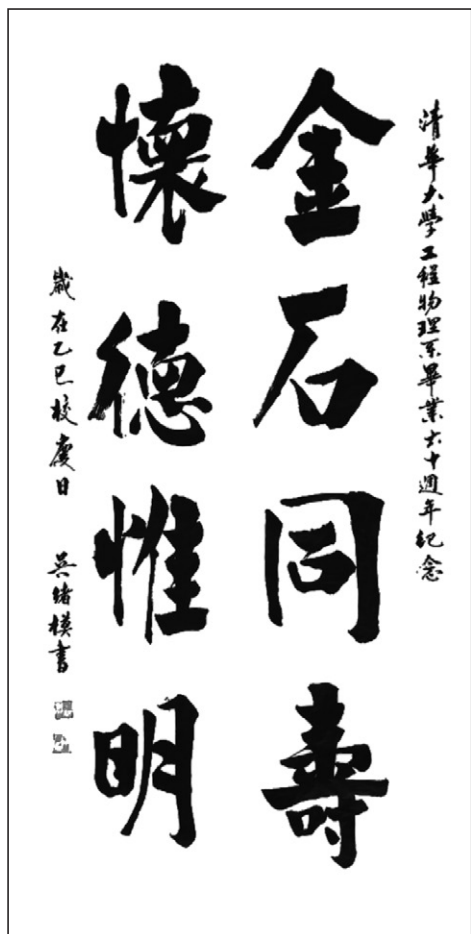 清華大學工程物理系畢業六十週年纪念
金石同壽
懷德惟明
歲在乙巳校慶日 吳绪模書